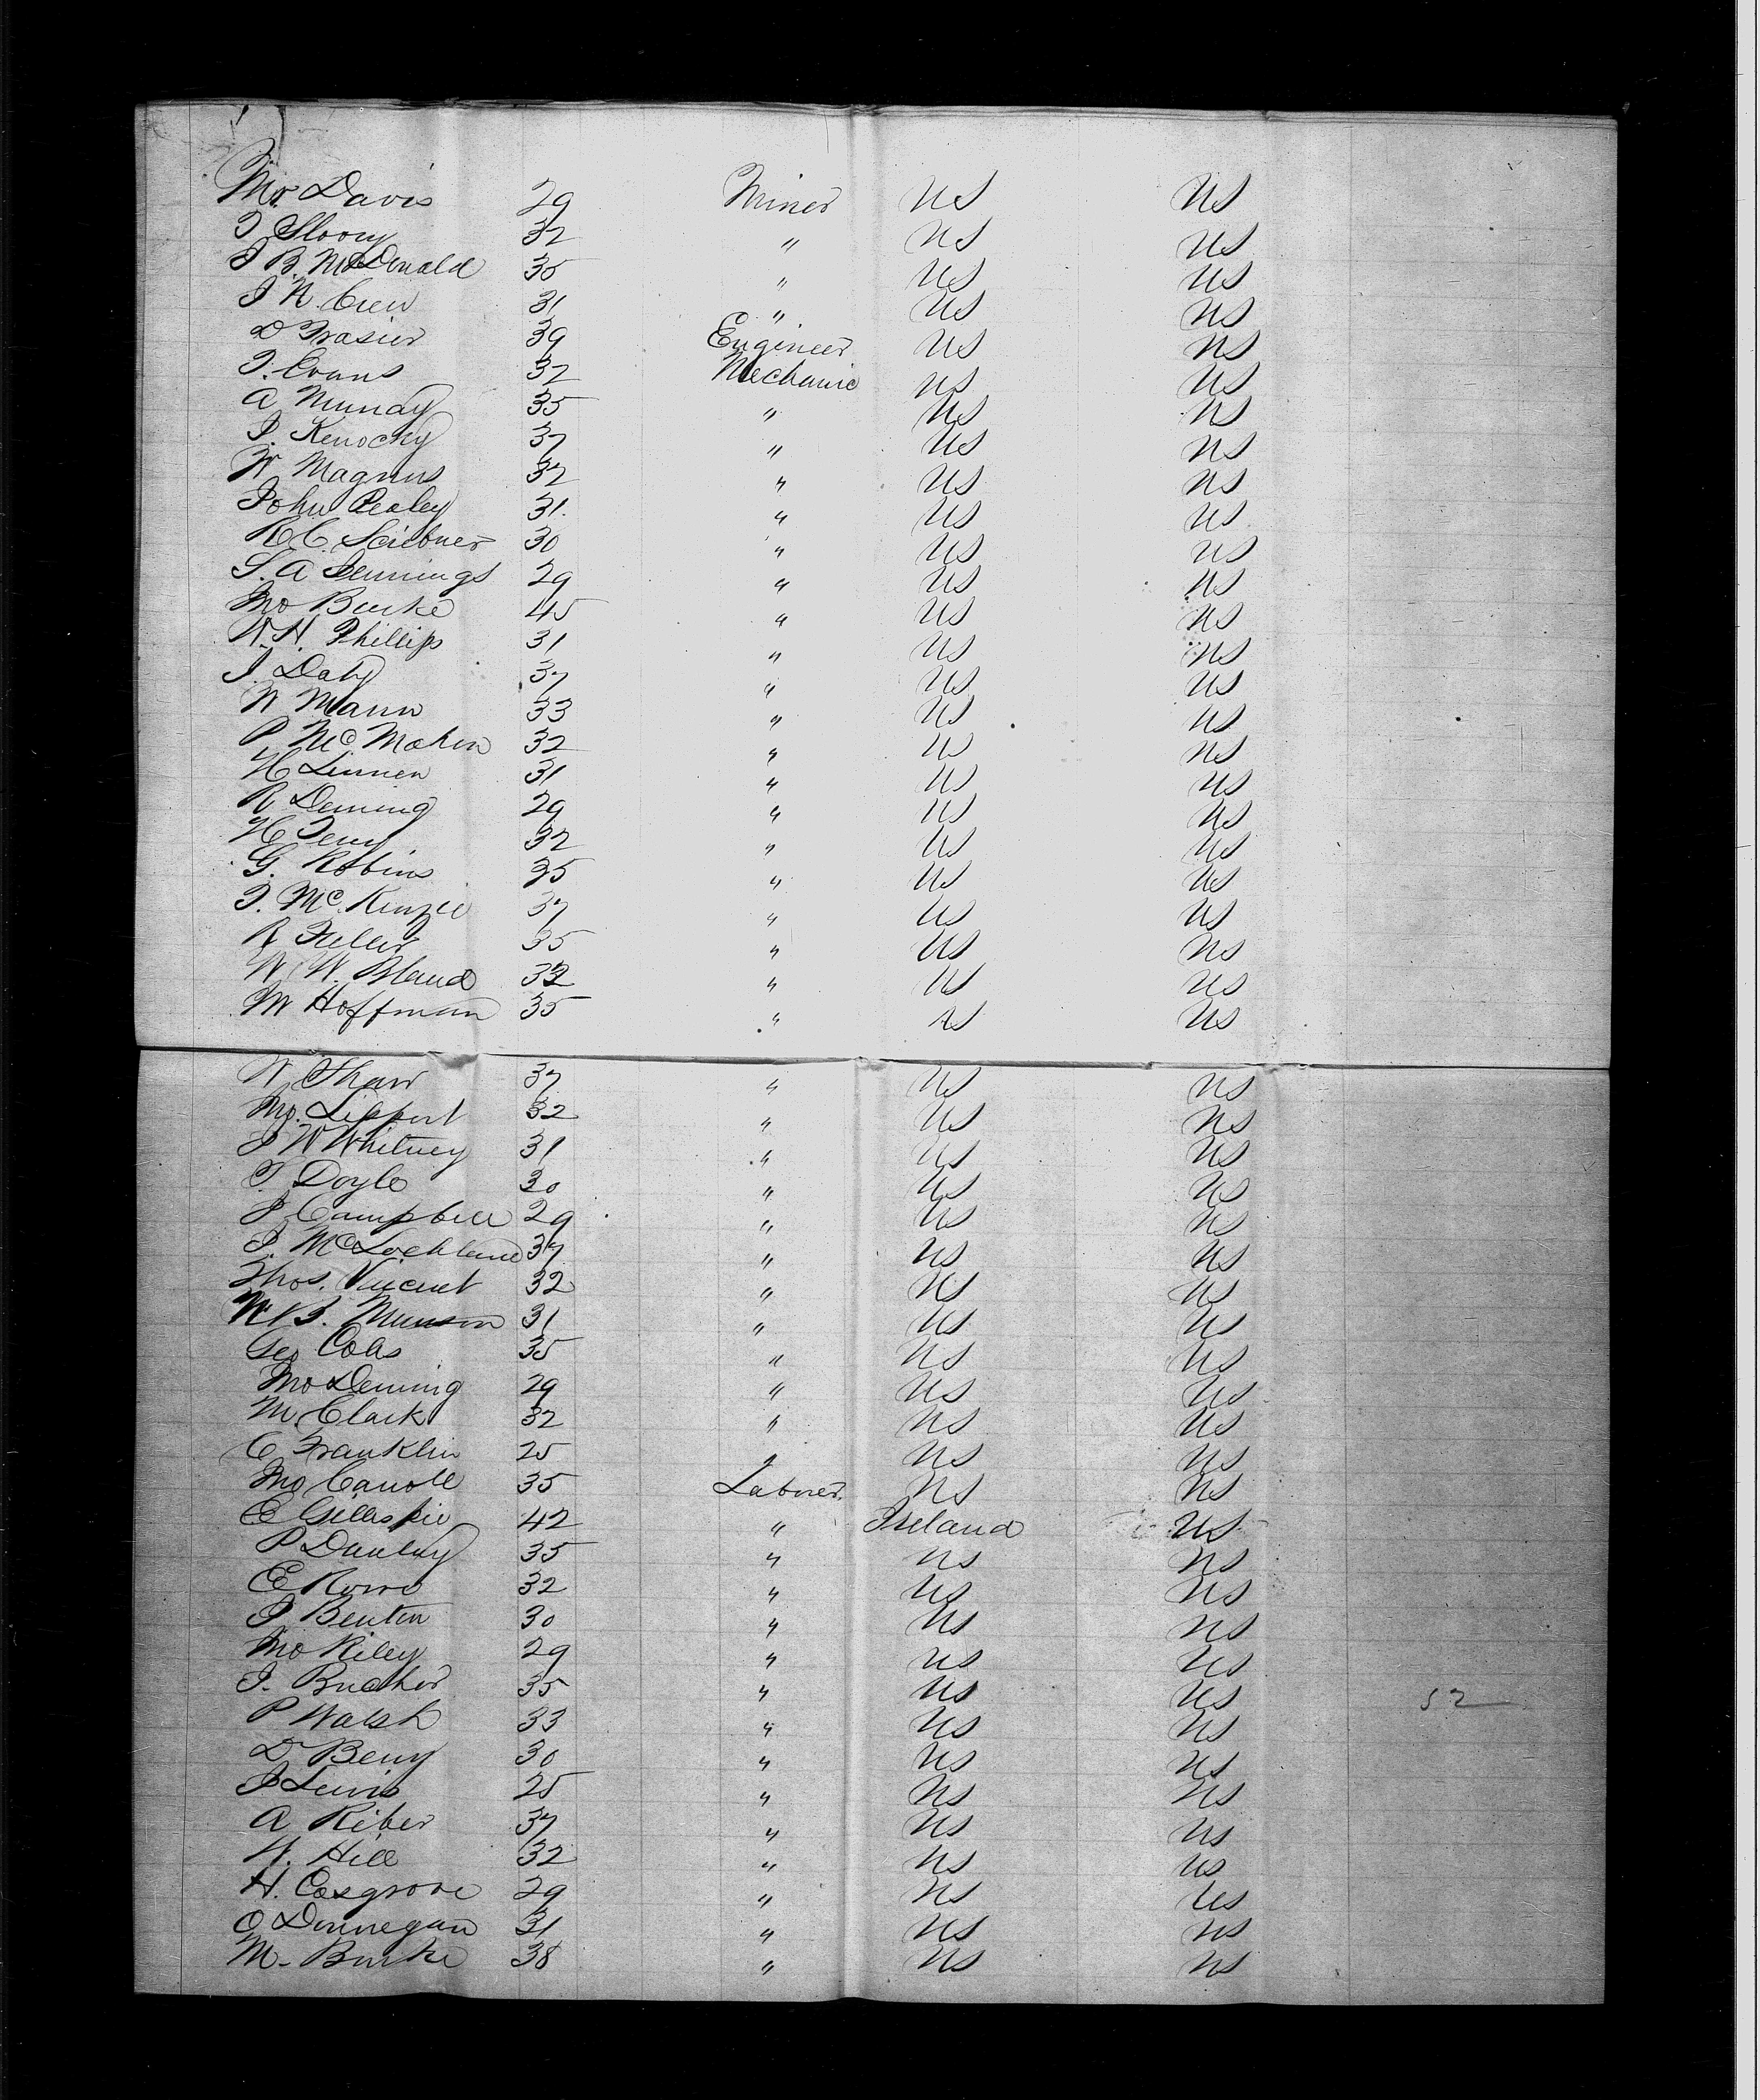 Mr Davis 29 Miner US US
T Sloory 32 " US US
J B. McDonald 35 " US US
J N. Crew 31 " US US
D Frasier 39 Engineer US US
T. Evans 32 Mechanic US US
A Munday 35 " US US
J. Kenochy 37 " US US
W Magnus 32 " US US
John Pealey 31. " US US
R C. Scribner 30 " US US
S. A Jennings 29 " US US
Jno Burke 45 " US US
W. H. Phillips 31 " US US
J. Daly 37 " US US
W Mann 33 " US US
P McMahon 32 " US US
H Linnen 31 " US US
R Deming 29 " US US
H Terry 32 " US US
G. Robins 35 " US US
T. McKenzie 37 " US US
R Fuller 35 " US US
W. W. Bland 32 " US US
M Hoffman 35 " US US
W Shaw 37 " US US
Jno. Lippert 32 " US US
J W Whitney 31 " US US
T Doyle 30 " US US
J Campbell 29 " US US
J. McLochland 37 " US US
Thos. Vincent 32 " US US
W B. Munson 31 " US US
Geo Cobs 35 " US US
Jno Deming 29 " US US
M. Clark 32 " US US
C Franklin 25 " US US
Jno Carroll 35 Laborer. US US
E Gillaspie 42 " Ireland US
P Dunlay 35 " US US
E Rowe 32 " US US
J Benton 30 " US US
Jno Riley 29 " US US
J. Bucher 35 " US US 52
P Walsh 33 " US US
D Berry 30 " US US
J Lewis 25 " US US
A Riber 37 " US US
W. Hill 32 " US US
H. Cosgrove 29 " US US
O Dunnegan 31 " US US
M. Burke 38 " US US